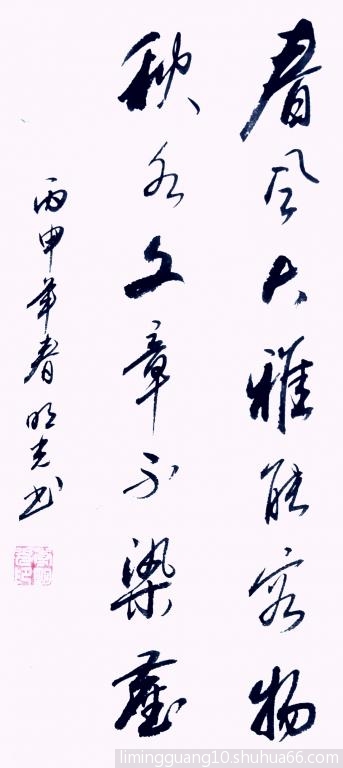 春风大雅能容物
秋水文章不染尘
丙申年春明光书
limingguang10.shuhua66.com